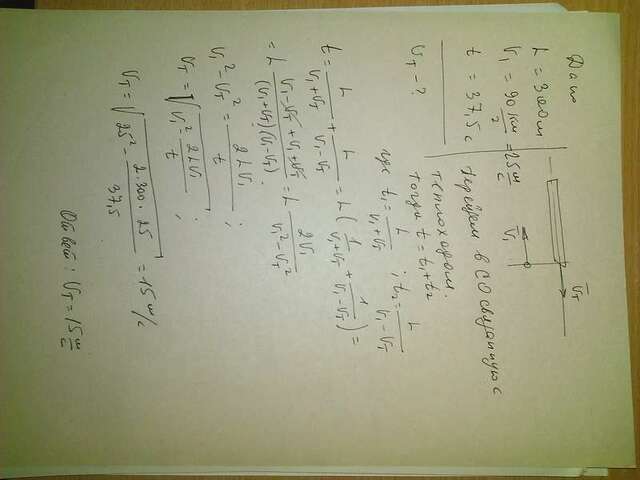 Дано
L = 300 м
V₁ = 90 км/г = 25 м/с
t = 37,5 с
υ_T - ?
V̄₁
V̄_T
Перейдем в СО связанную с
теплоходом.
тогда t = t₁ + t₂
где t₁ = L/(v₁+v_T) ; t₂ = L/(v₁-v_T)
t = L/(v₁+v_T) + L/(v₁-v_T) = L (1/(v₁+v_T) + 1/(v₁-v_T)) =
= L (v₁-v_T+v₁+v_T)/((v₁+v_T)(v₁-v_T)) = L 2v₁/(v₁²-v_T²)
v₁² - v_T² = 2Lv₁/t ;
v_T = √(v₁² - 2Lv₁/t) ;
v_T = √(25² - 2·300·25/37,5) = 15 м/с
Ответ: v_T = 15 м/с